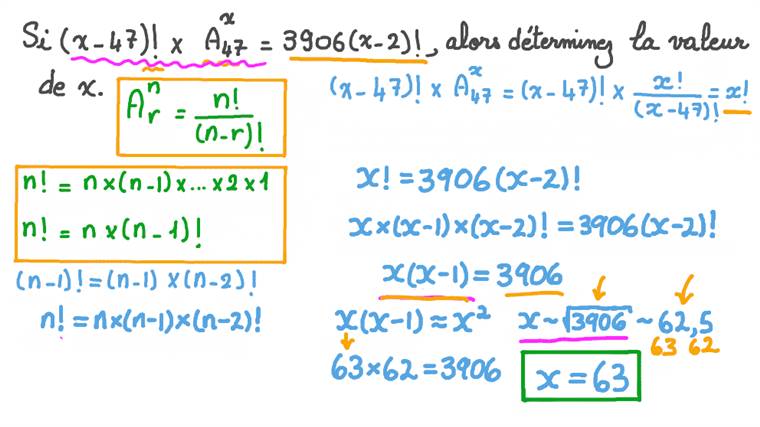 Si (x-47)! × A^x_47 = 3906(x-2)!, alors déterminez la valeur
de x.
A^n_r = n!/(n-r)!
(x-47)! × A^x_47 = (x-47)! × x!/(x-47)! = x!
n! = n×(n-1)×...×2×1
n! = n×(n-1)!
(n-1)! = (n-1)×(n-2)!
n! = n×(n-1)×(n-2)!
x! = 3906(x-2)!
x×(x-1)×(x-2)! = 3906(x-2)!
x(x-1) = 3906
x(x-1) ≈ x² x ~ √3906 ~ 62,5
63 62
63×62 = 3906
x = 63